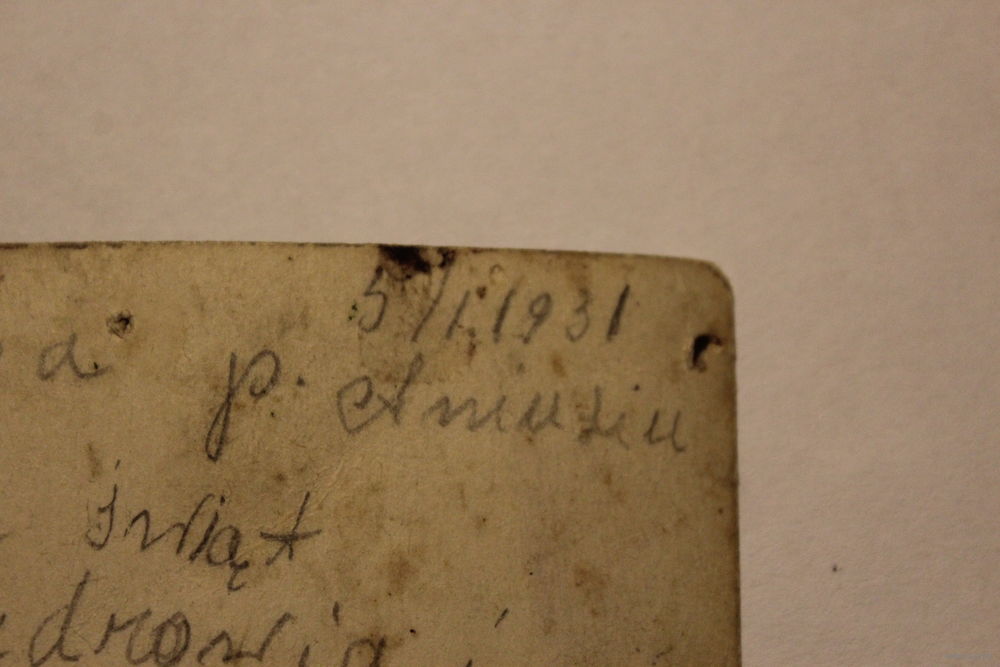 5/I.1931
d. p. Amusiu
Świąt
zdrowia i